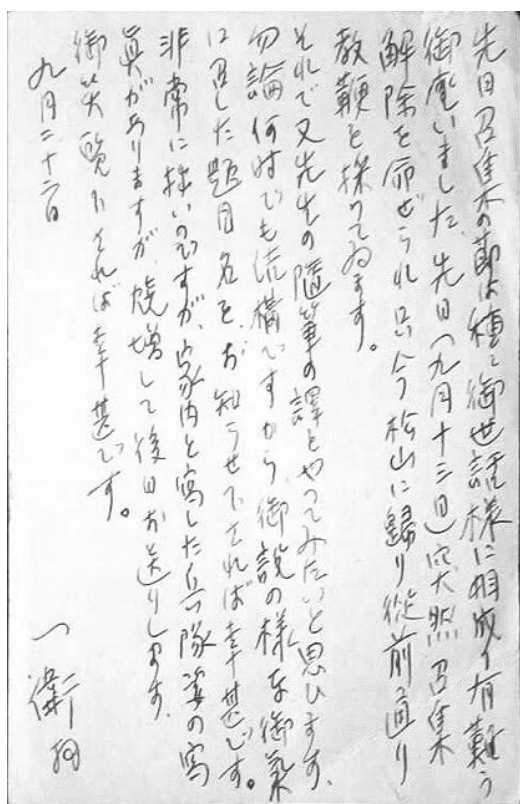 先日召集の節は種々御世話様に相成り有難う
御座いました、先日(九月十三日)突然召集
解除を命ぜられ只今松山に歸り從前通り
教鞭を採つてゐます。
それで又先生の隨筆の譯をやつてみたいと思ひます、
勿論何時でも結構ですから、御説の様な御氣
に召した題目名をお知らせ下されば幸甚です。
非常に拙いのですが、家内と寫した兵隊姿の寫
眞がありますが、焼増して後日お送りします、
御笑覧下されば幸甚です。
九月二十二日
一衛拜